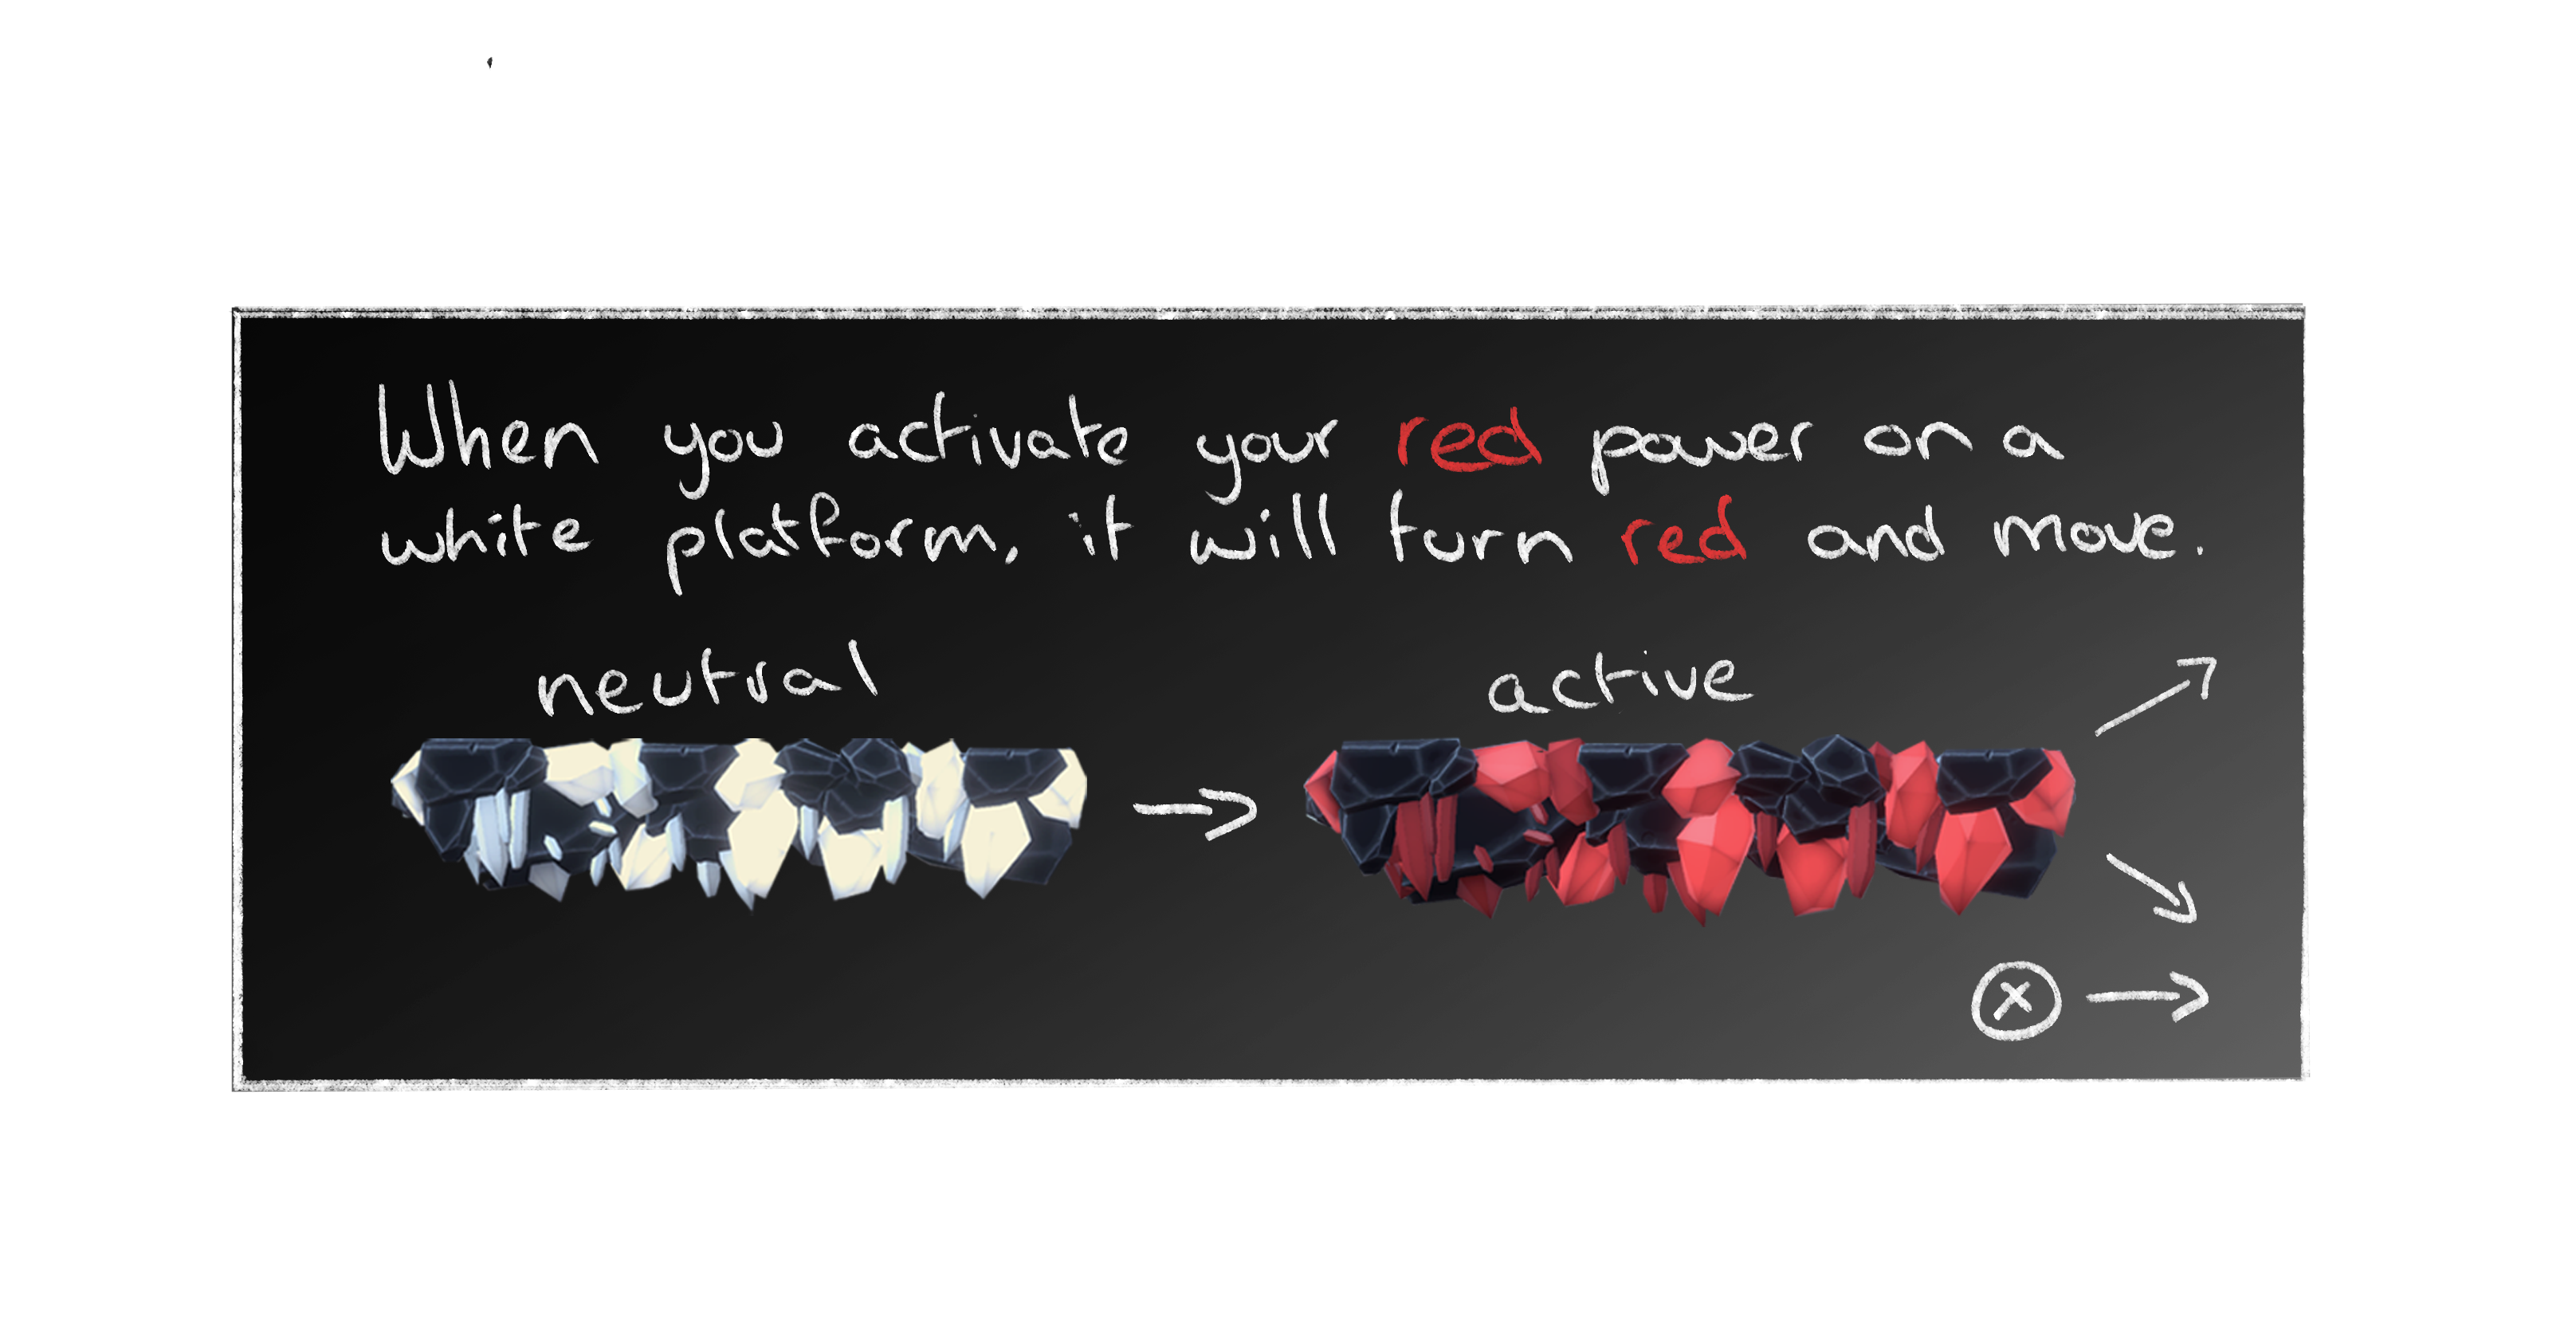 When you activate your red power on a
white platform, it will turn red and move.
neutral
active
X